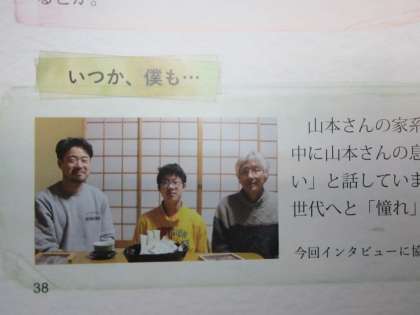 るとか。
いつか、僕も…
山本さんの家系
中に山本さんの息
い」と話していま
世代へと「憧れ」
今回インタビューに協
38